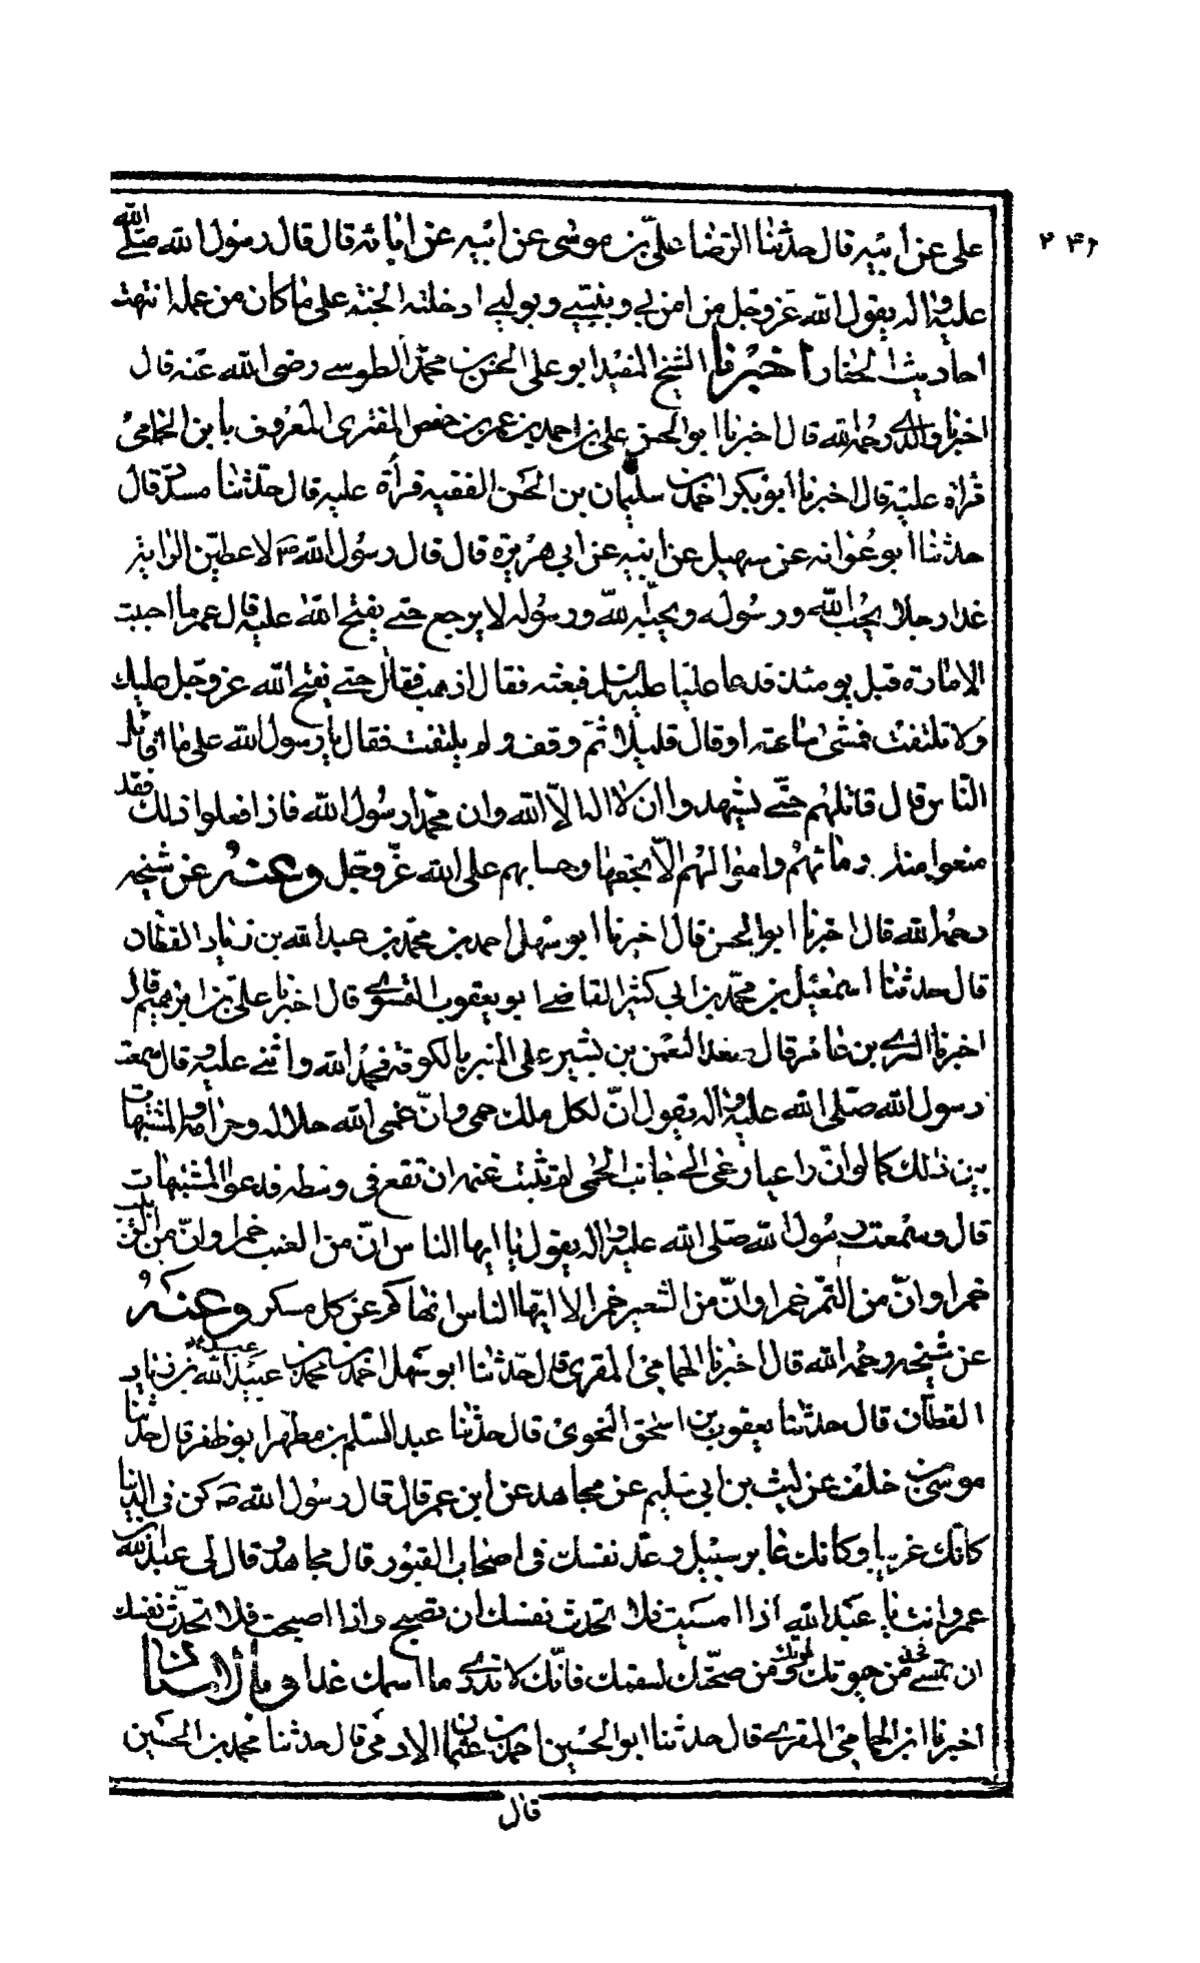 ۲۴۲
علی عن أبیه قال حدثنا الرضا علیّ بن موسی عن ابیه عن اٰبائه قال قال رسول الله صلّی الله
علیه واله یقول الله عزوجل من امن بی وبنبیی وبولیی ادخلته الجنة علی ما کان من عمله انتهت
احادیث الحفار اخبرنا الشیخ المفید ابو علی الحسن بن محمّد الطوسی رضی الله عنه قال
اخبرنا والدی رحمه الله قال اخبرنا ابو الحسن علی بن احمد بن عمر بن حفص المقری المعروف بابن الحمامی
قرأة علیه قال اخبرنا ابو بکر احمد بن سلیمان بن الحسن الفقیه قرأة علیه قال حدّثنا مسدّد قال
حدثنا ابو عوانه عن سهیل عن ابیه عن ابی هریرة قال قال رسول الله ص لاعطین الرایة
غدا رجلا یحب الله ورسوله ویحبّه الله ورسوله لا یرجع حتی یفتح الله علیه قال عمر ما احببت
الامارة قبل یومئذ فدعا علیّا علیه السلم فبعثه فقال اذهب فقاتل حتی یفتح الله عز وجل علیك
ولا تلتفت فمشی ساعة او قال قلیلا ثمّ وقف ولم یلتفت فقال یا رسول الله علی ما اقاتل
النّاس قال قاتلهم حتّی یشهدوا ان لا اله الاّ الله وان محمّدا رسول الله فاذا فعلوا ذلك فقد
منعوا منك دمائهم واموالهم الاّ بحقها وحسابهم علی الله عزّ وجل وعنه عن شیخه
رحمه الله قال اخبرنا ابو الحسن قال اخبرنا ابو سهل احمد بن محمّد بن عبد الله بن زیاد القطان
قال حدثنا اسمعیل بن محمّد بن ابی کثیر القاضی ابو یعقوب الفسوی قال اخبرنا علیّ بن ابراهیم قال
اخبرنا السری بن عامر قال صعد النعمن بن بشیر علی المنبر بالکوفة فحمد الله واثنی علیه وقال سمعت
رسول الله صلّی الله علیه واله یقول انّ لکل ملك حمی وانّ حمی الله حلاله وحرامه والمشتبهات
بین ذلك کما لو انّ راعیا رعی الی جانب الحمی لم تثبت غنمه ان تقع فی وسطه فدعوا المشتبهات
قال وسمعت رسول الله صلّی الله علیه واله یقول یا ایها الناس انّ من العنب خمرا وانّ من الزبیب
خمرا وانّ من التمر خمرا وانّ من الشعیر خمرا الا ایّها الناس انهاکم عن کل مسکر وعنه
عن شیخه رحمه الله قال اخبرنا الحمامی المقری قال حدّثنا ابو سهل احمد بن محمد بن عبید الله بن زیاد
القطّان قال حدثنا یعقوب بن اسحق النحوی قال حدثنا عبد السّلم بن مطهّر ابو ظفر قال حدّثنا
موسی بن خلف عن لیث بن ابی سلیم عن مجاهد عن ابن عمر قال قال رسول الله ص کن فی الدنیا
کانّك غریب او کانك عابر سبیل وعدّ نفسك فی اصحاب القبور قال مجاهد وقال لی عبد الله بن
عمر وانت یا عبد الله اذا امسیت فلا تحدث نفسك ان تصبح واذا اصبحت فلا تحدّث نفسك
ان تمسی فخذ من حیوتك لموتك ومن صحّتك لسقمك فانّك لا تدری ما اسمك غدا وبالاسناد
اخبرنا ابن الحمامی المقری قال حدثنا ابو الحسین احمد بن عثمان الادمی قال حدثنا محمد بن الحسین
قال